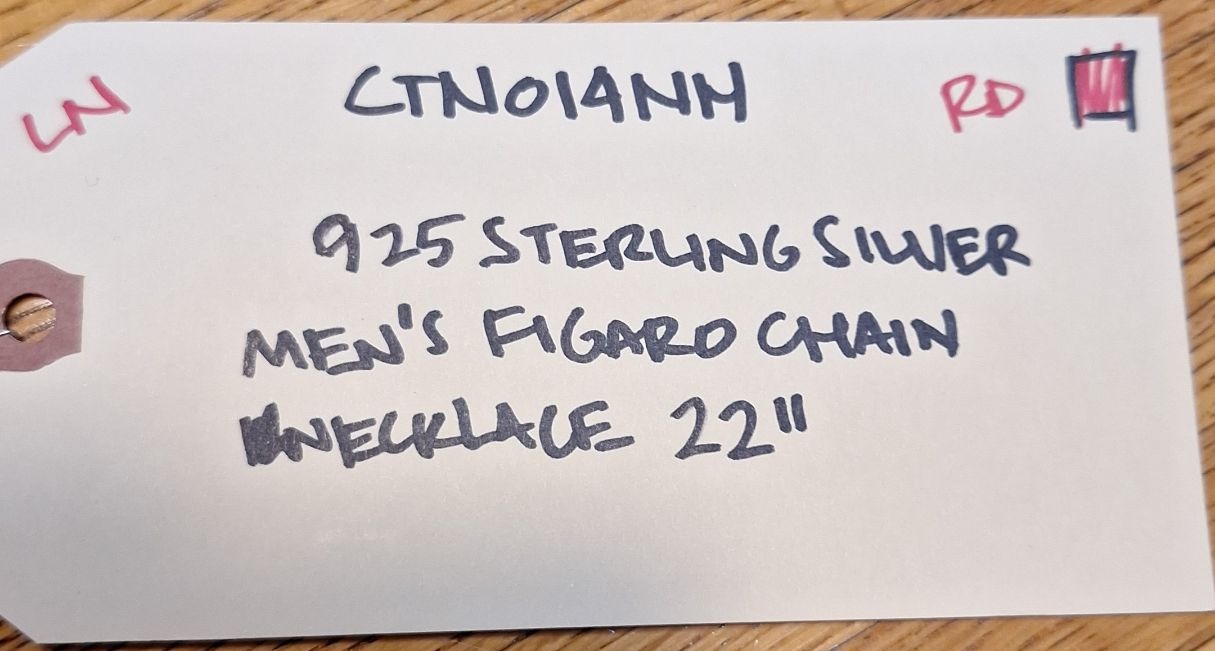 LN CTN014NH RD
925 STERLING SILVER
MEN'S FIGARO CHAIN
NECKLACE 22"